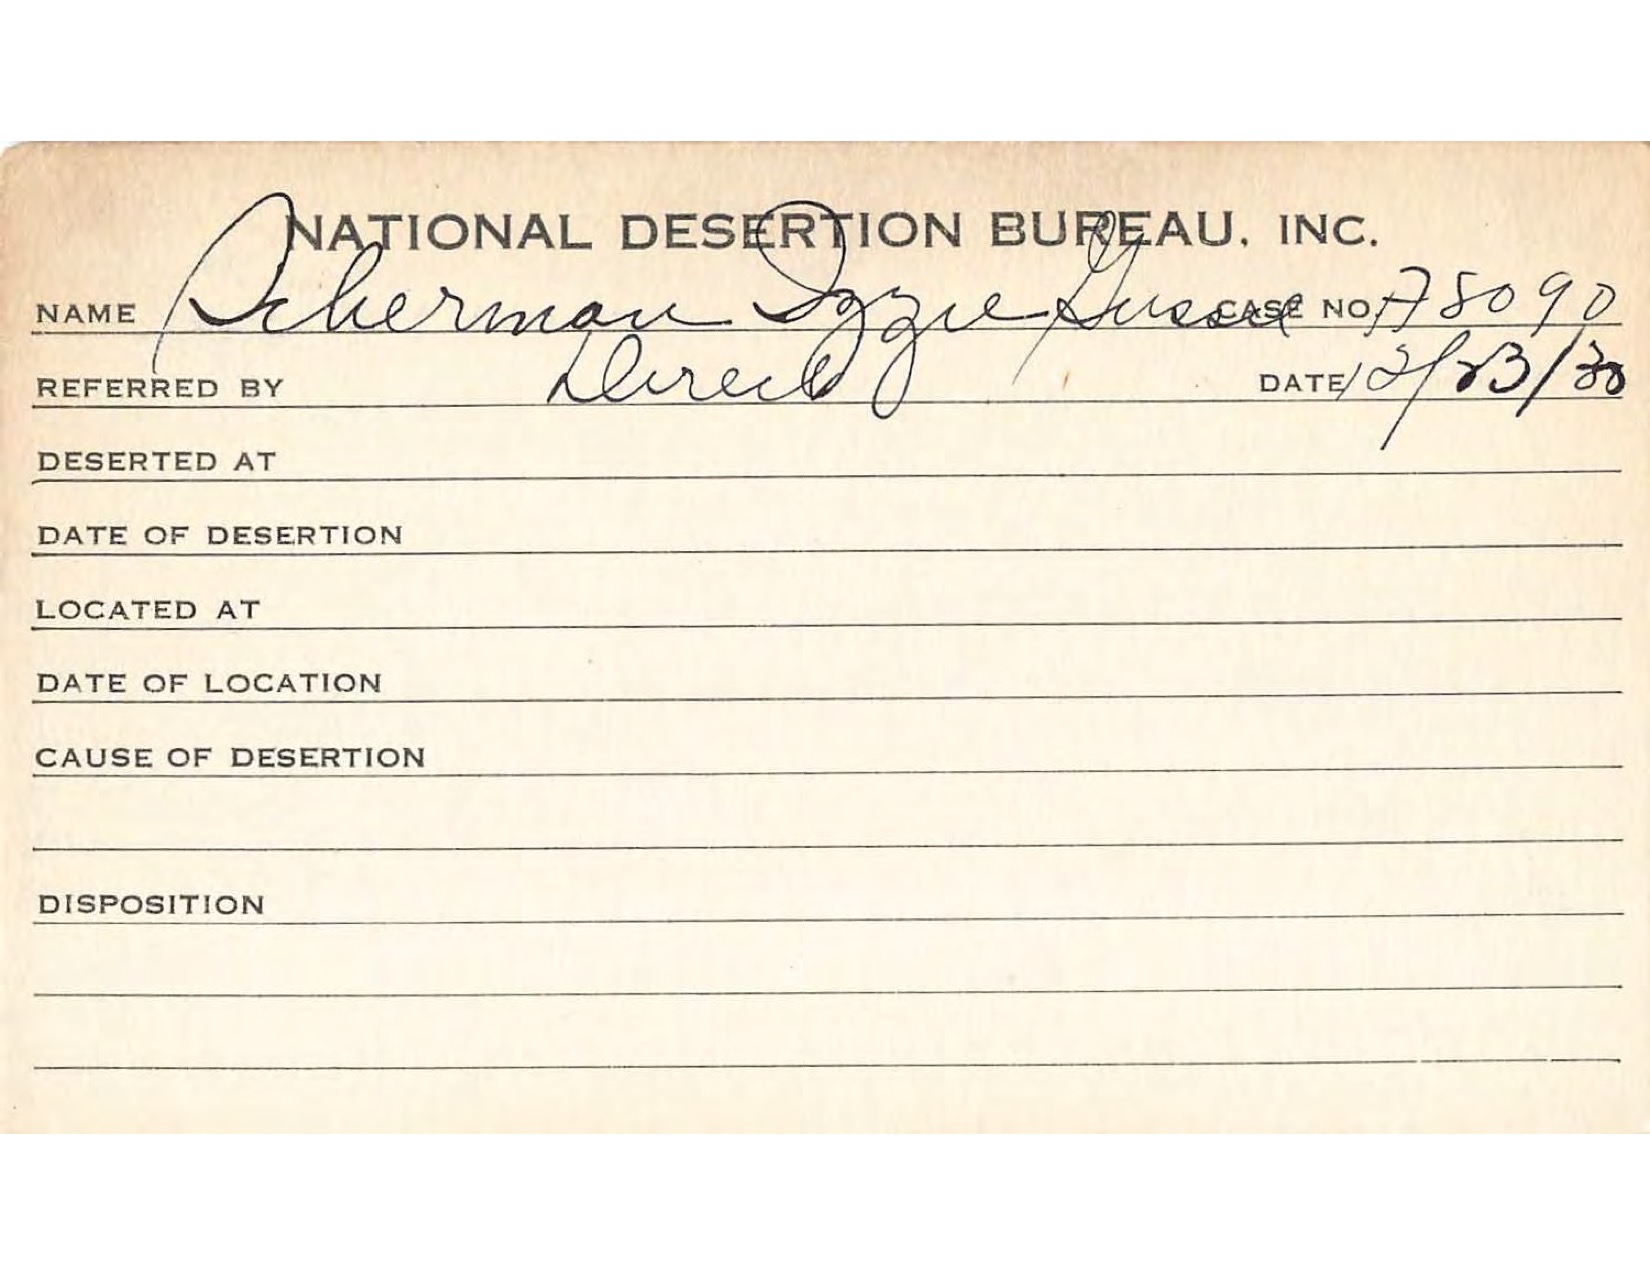 NATIONAL DESERTION BUREAU, INC.
NAME Ackerman Izzie Gussie CASE NO. A8090
REFERRED BY Direct DATE 12/23/30
DESERTED AT
DATE OF DESERTION
LOCATED AT
DATE OF LOCATION
CAUSE OF DESERTION
DISPOSITION